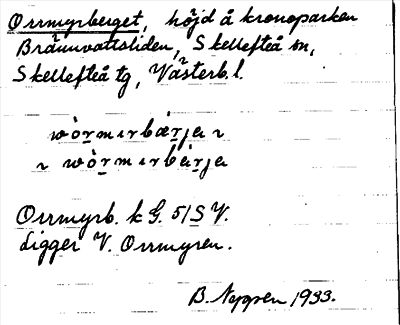 Orrmyrberget, höjd å kronoparken
Brännvattsliden, Skellefteå sn,
Skellefteå tg, Västerb. l.
wòrmırbærja ı
ı wòrmırbærja
Orrmyrb. k G. 51 S V.
Ligger V. Orrmyren.
B. Nyppen 1933.